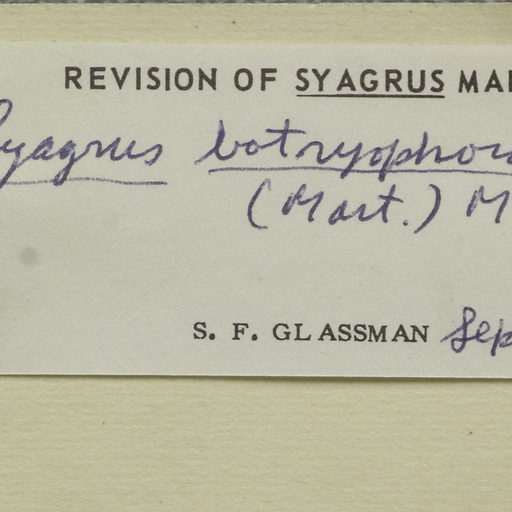 REVISION OF SYAGRUS MA
Syagrus botryopho
(Mart.) M
S. F. GLASSMAN Sep